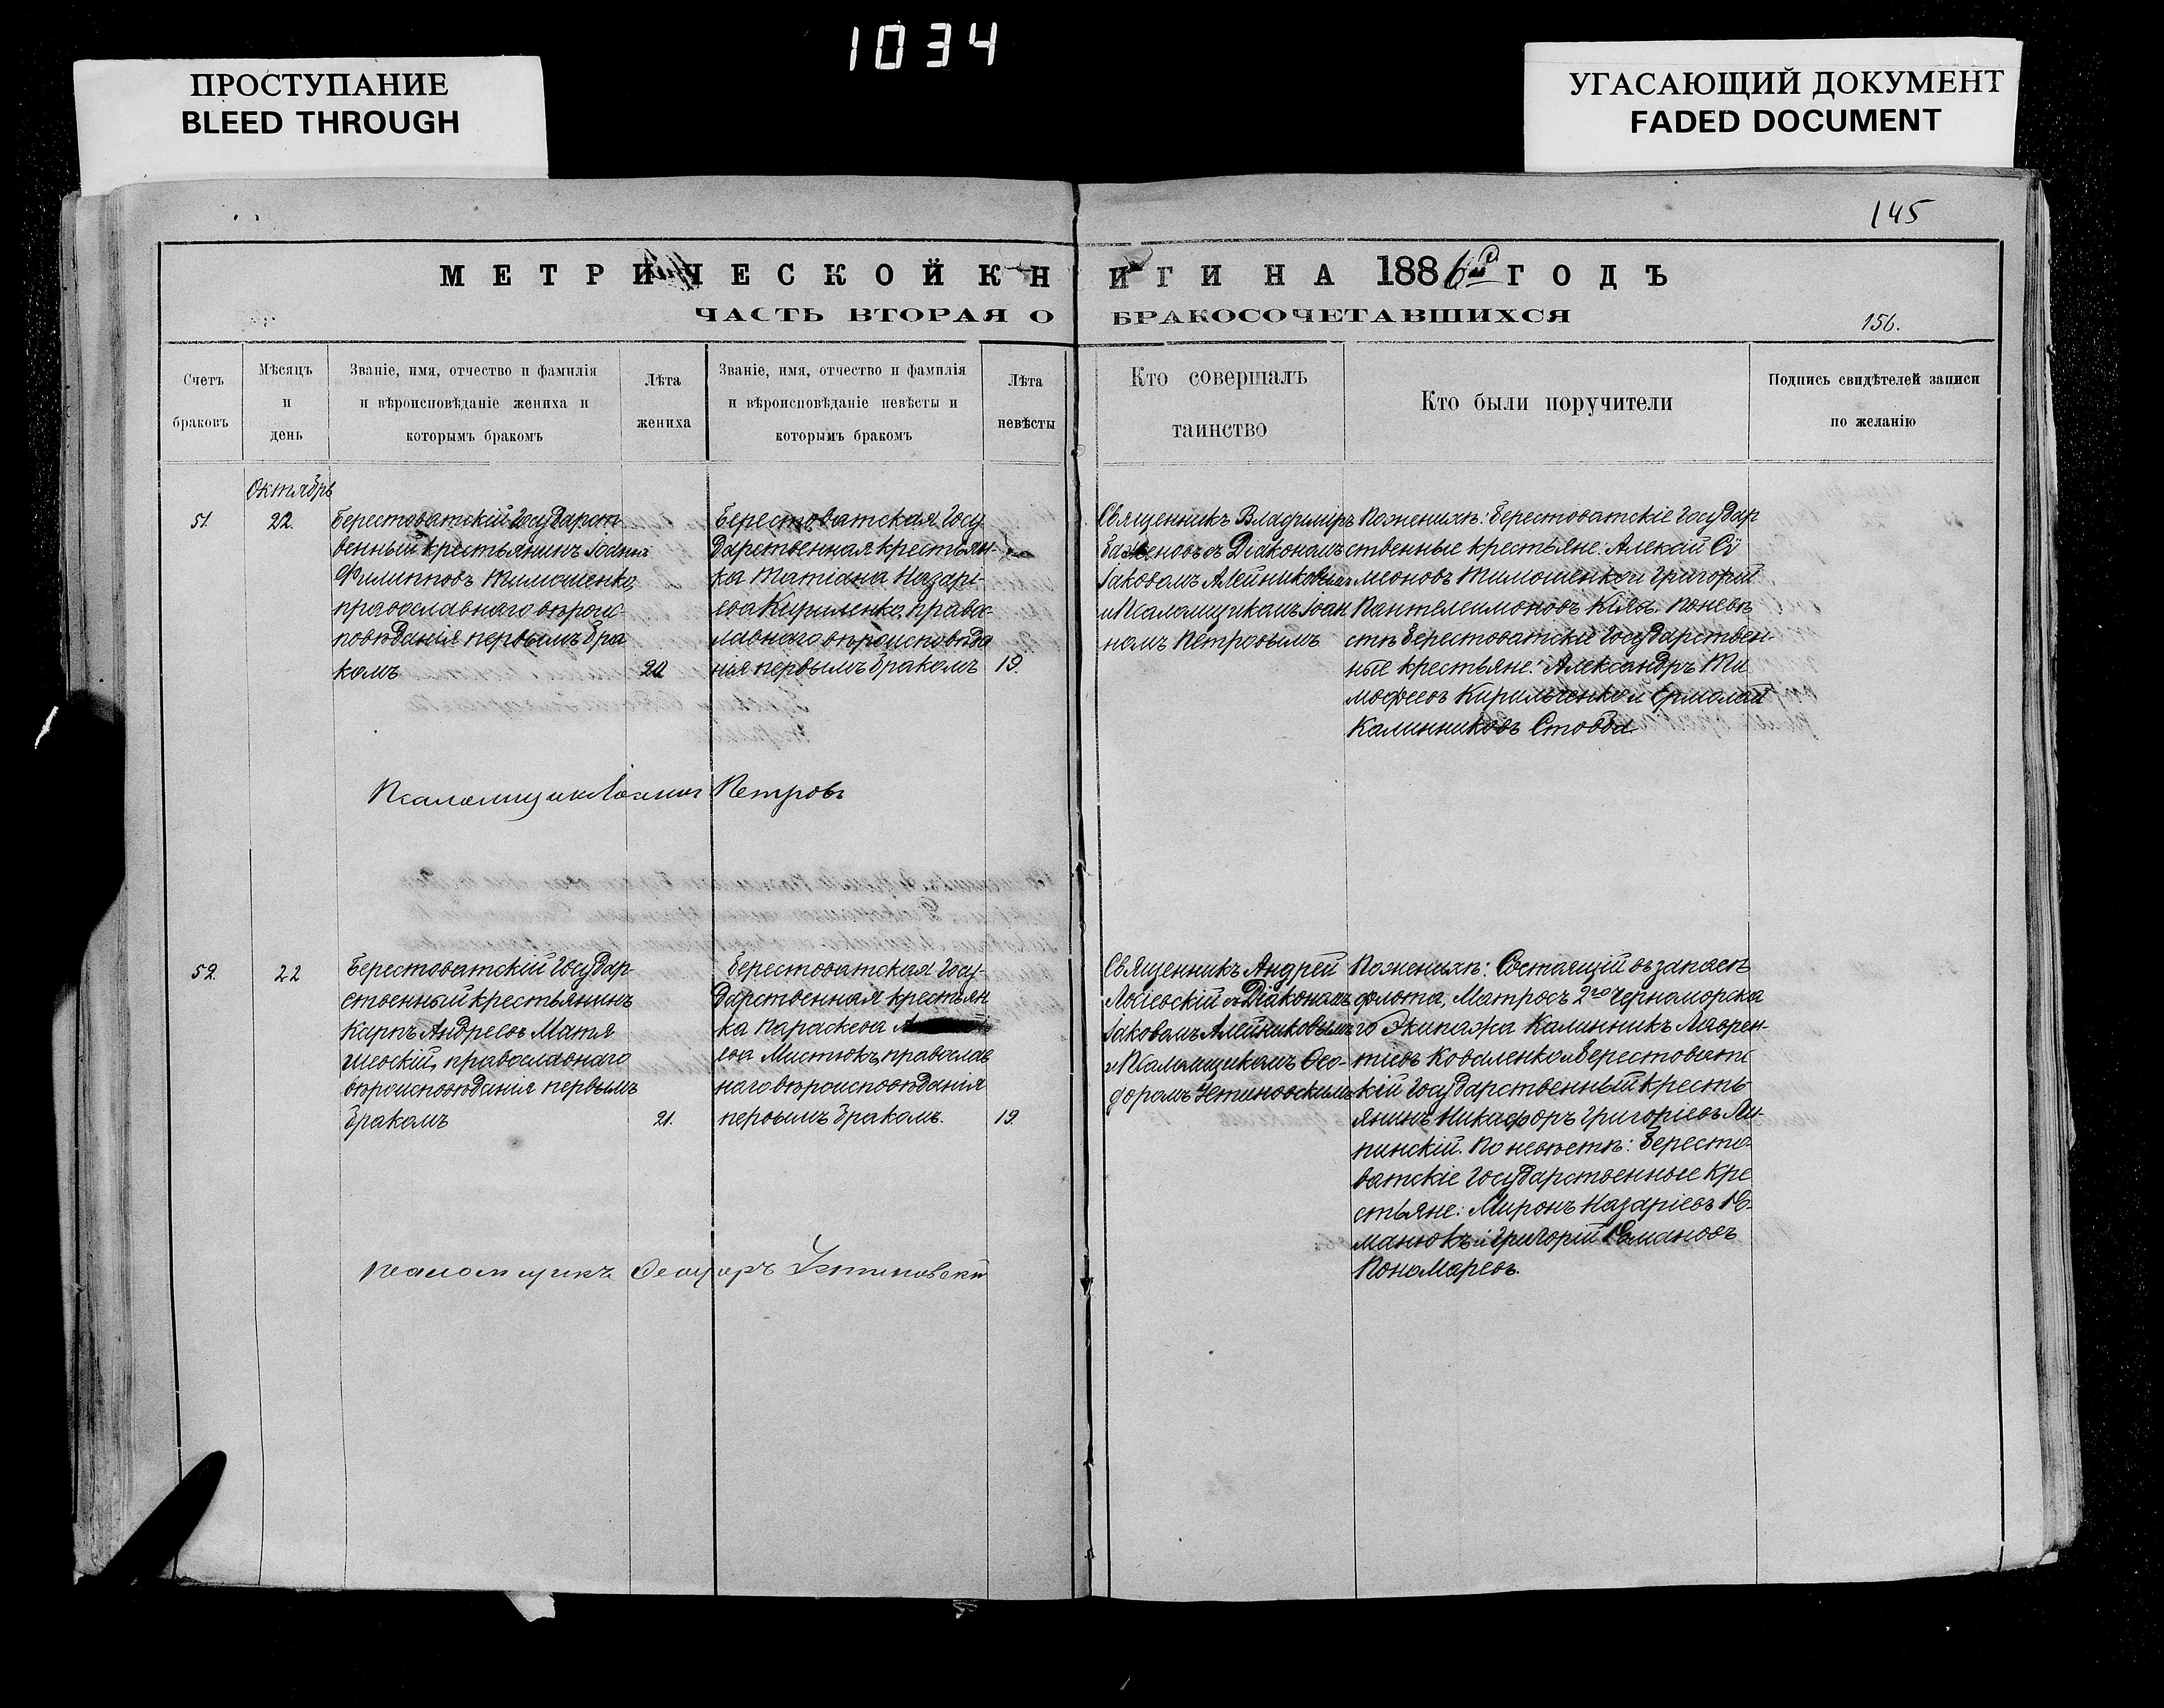 1034
ПРОСТУПАНИЕ
BLEED THROUGH
УГАСАЮЩИЙ ДОКУМЕНТ
FADED DOCUMENT
145
МЕТРИЧЕСКОЙ КНИГИ НА 1886 ГОДЪ
ЧАСТЬ ВТОРАЯ О БРАКОСОЧЕТАВШИХСЯ
156.
Счетъ
браковъ
Мѣсяцъ
и
день
Званіе, имя, отчество и фамилія
и вѣроисповѣданіе жениха и
которымъ бракомъ
Лѣта
жениха
Званіе, имя, отчество и фамилія
и вѣроисповѣданіе невѣсты и
которымъ бракомъ
Лѣта
невѣсты
Кто совершалъ
таинство
Кто были поручители
Подпись свидѣтелей записи
по желанію
Октябрь
51.
22.
Берестоватскій Государст
венный крестьянинъ Іоаннъ
Филипповъ Тимошенко,
православнаго вѣроис
повѣданія первымъ бра
комъ
Берестоватская Госу
дарственная крестьян-
ка Татіана Назарі-
ева Кириленко, правос
лавнаго вѣроисповѣда
нія первымъ бракомъ
19.
Священникъ Владиміръ
Баженовъ съ Діакономъ
Іаковомъ Алейниковымъ
и Псаломщикомъ Іоан
номъ Петровымъ
По женихѣ: Берестоватскіе Государ
ственные крестьяне: Алексій Си
меоновъ Тимошенко и Григорій
Пантелеимоновъ Кіяъ. По невѣ
стѣ Берестоватскіе Государствен-
ные крестьяне: Александръ Ти
мофеевъ Кирильченко и Ермолай
Калинниковъ Стовба
Псаломщикъ Іоаннъ Петровъ
52.
22
Берестоватскій Государ-
ственный крестьянинъ
Карпъ Андреевъ Матя
шевскій, православнаго
вѣроисповѣданія первымъ
бракомъ
21.
Берестоватская Госу-
дарственная крестьян
ка Параскева
ева Мистюкъ, православ
наго вѣроисповѣданія
первымъ бракомъ.
19.
Священникъ Андрей
Лосіевскій съ Діакономъ
Іаковомъ Алейниковымъ
и Псаломщикомъ Ѳео-
доромъ Устиновскимъ
По женихѣ: Состоящій въ запасѣ
флота, Матросъ 2го Черноморска
го Экипажа Калинникъ Лаврен-
тіевъ Коваленко и Берестоватс
кій Государственный кресть-
янинъ Никифоръ Григоріевъ Ли-
пинскій. По невѣстѣ: Бересто-
ватскіе Государственные кре
стьяне: Миронъ Назаріевъ Ро-
манюкъ и Григорій Романовъ
Пономаревъ.
Псаломщикъ Ѳеодоръ Устиновскій